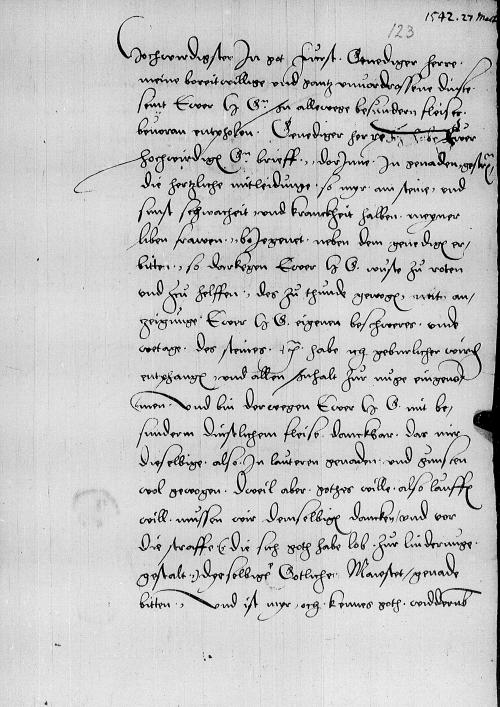 1542. 27 Mart
123
Hochwirdigster In got Furst. Genediger herre.
meine bereitwillige und gantz unvordrossene dinste
seint Ewer h G. zu allewege besundern fleises
bevoran entpholen. Genediger herre Ewer
hochwirdigen G. brieff, dorinne In genaden
die hertzliche mitleidunge, so myr am steine, und
sunst schwacheit, und kranckheit halben meyner
liben frawen, bejegenet, neben dem genedigen er-
bitten, so darkegen Ewer h G. wuste zu roten
und zu helffen, des zu thunde gewogen, mit an-
zeigunge Ewer h G. eigenen beschweres, unde
wetage des steines habe ich geburlicher wirde
entphangen, und allen Inhalt zur nuge eingenom
men. Und bin derwegen Ewer h G. mit be-
sunderm dinstlichem fleise danckbar, das mir
dieselbige also In lauteren genaden und gunsten
wol gewogen. Dweil aber gothes wille also lauffen
will, mussen wir demselbigen dancken, und vor
die straffe (die sich goth habe lob zur linderunge
gestalt) dyeselbige Gotliche Maiestet, genade
bitten, Und ist myr, och kennes goth,